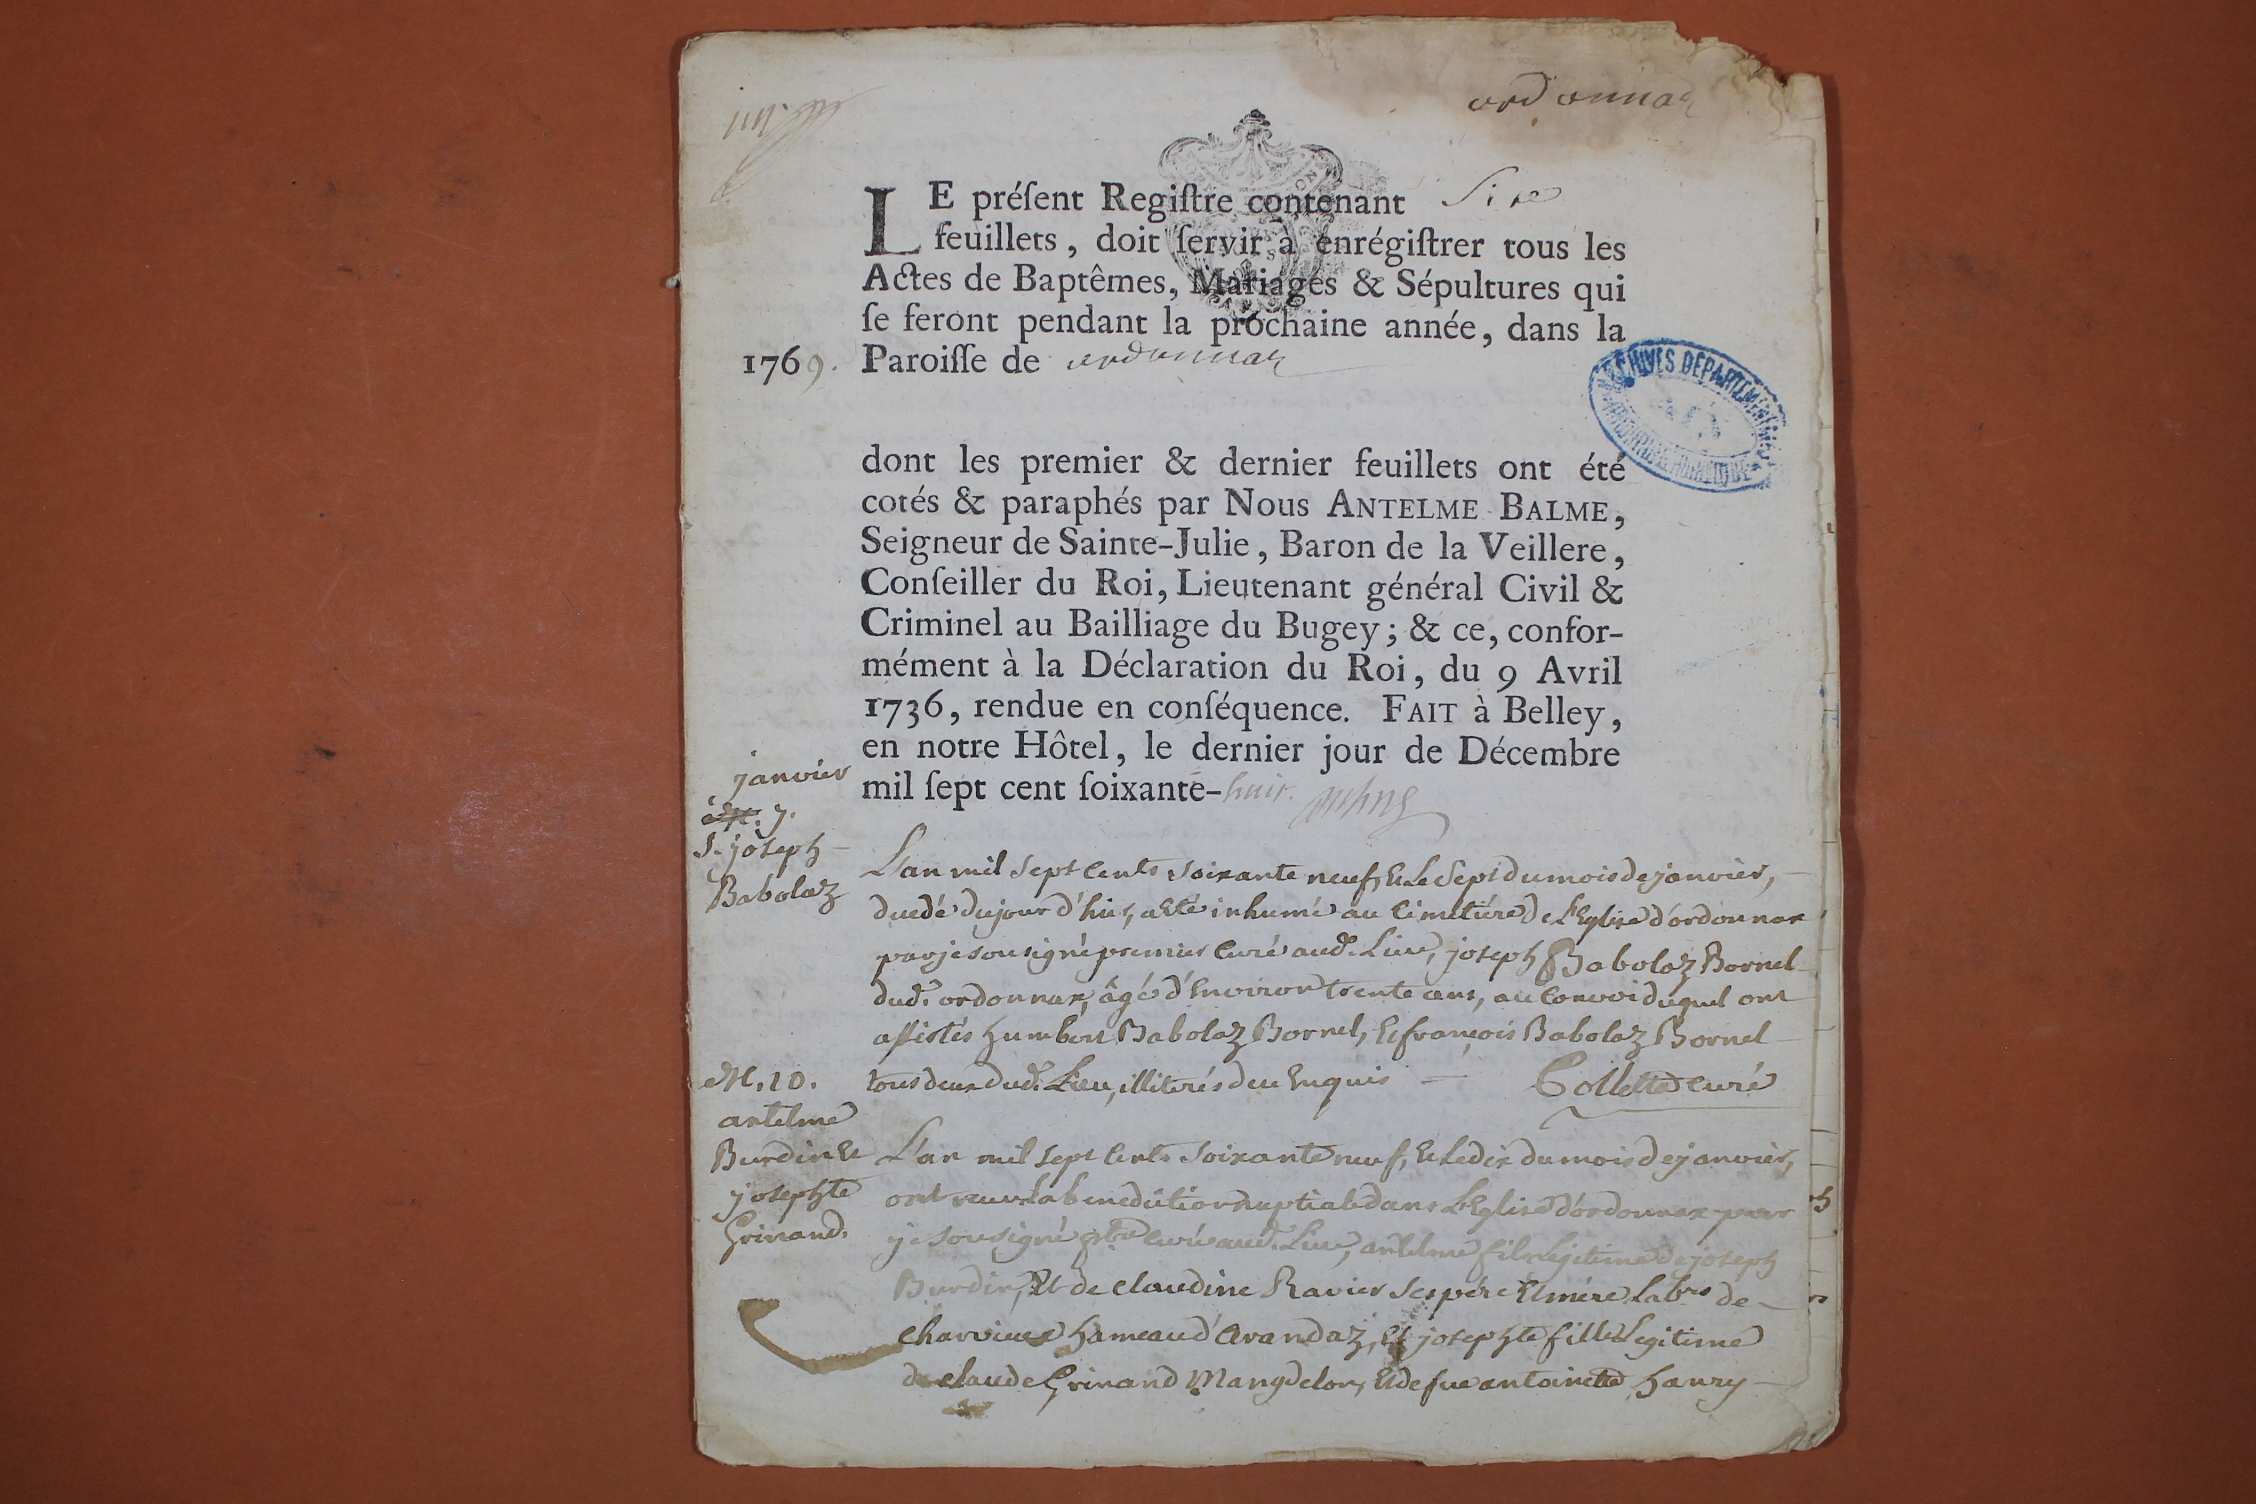 ordonnax
LE préſent Regiſtre contenant Six
feuillets, doit ſervir à enrégiſtrer tous les
Actes de Baptêmes, Mariages & Sépultures qui
ſe feront pendant la prochaine année, dans la
1769. Paroiſſe de ordonnax
ARCHIVES DÉPARTEMENTALES
dont les premier & dernier feuillets ont été
cotés & paraphés par Nous ANTELME BALME,
Seigneur de Sainte-Julie, Baron de la Veillere,
Conſeiller du Roi, Lieutenant général Civil &
Criminel au Bailliage du Bugey; & ce, confor-
mément à la Déclaration du Roi, du 9 Avril
1736, rendue en conſéquence. FAIT à Belley,
en notre Hôtel, le dernier jour de Décembre
mil ſept cent ſoixante-huit.
janvier
7.
S. joseph
Babolaz
L'an mil sept cents soixante neuf, et le sept du mois de janvier,
ducdé du jour d'hier, a été inhumé au cimetiére de l'Eglise d'ordonnax
par je sousigné premier curé aud. Lieu, joseph Babolaz Bornel
dud. ordonnax, âgé d'environ trente ans, au convoi duquel ont
assistés humbert Babolaz Bornel, et françois Babolaz Bornel
tous deux dud. Lieu, illiterés de ce enquis Collette curé
M. 10.
antelme
Burdin et
josephte
Grinand.
L'an mil sept cents soixante neuf, et le dix du mois de janvier,
ont reçus la benediction nuptiale dans l'Eglise d'ordonnax par
je sousigné ptre curé aud. Lieu, antelme fils legitime de joseph
Burdin, et de claudine Ravier ses pére et mére labrs de
charvieux hameau d'arandaz, et josephte fille legitime
de claude Grinand Mangdelon, et de fue antoinette hanry